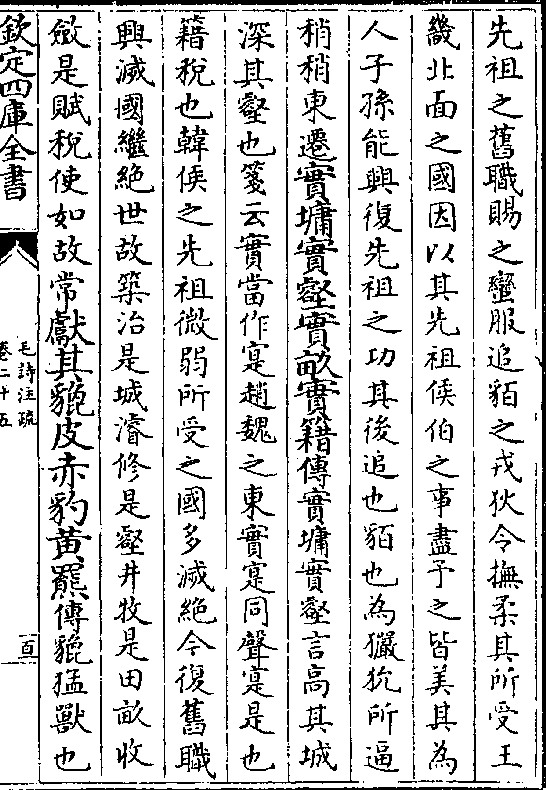 先祖之舊職賜之蠻服追貊之戎狄令撫柔其所受王
畿北面之國因以其先祖侯伯之事盡予之皆美其為
人子孫能興復先祖之功其後追也貊也為玁狁所逼
稍稍東遷實墉實壑實畝實籍傳實墉實壑言高其城
深其壑也箋云實當作寔趙魏之東實寔同聲寔是也
籍稅也韓侯之先祖微弱所受之國多滅絶今復舊職
興滅國繼絶世故築治是城濬修是壑井牧是田畝收
斂是賦稅使如故常獻其貔皮赤豹黄羆傳貔猛獸也
欽定四庫全書
毛詩注疏
卷二十五
百